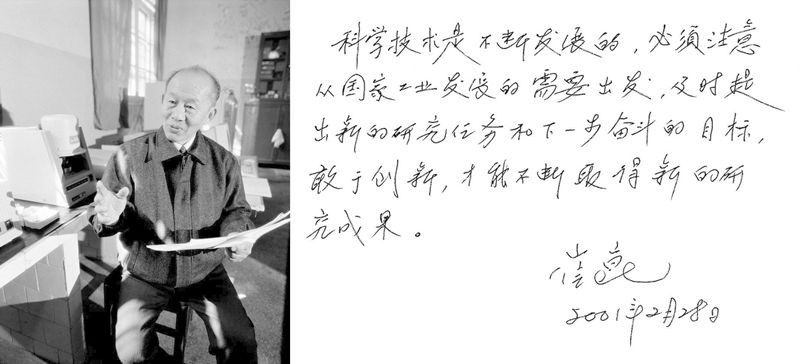 科学技术是不断发展的，必须注意
从国家工业发展的需要出发，及时提
出新的研究任务和下一步奋斗的目标，
敢于创新，才能不断取得新的研
究成果。
2001年2月28日